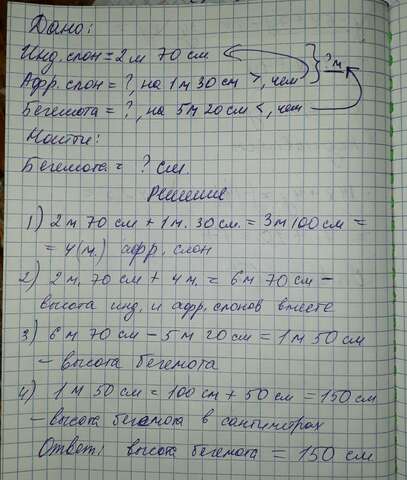 Дано:
Инд. слон = 2 м 70 см
Афр. слон = ?, на 1 м 30 см >, чем
? м
Бегемота = ?, на 5 м 20 см <, чем
Найти:
Бегемота = ? см.
Решение
1) 2 м 70 см + 1 м. 30 см. = 3 м 100 см =
= 4 (м.) афр. слон
2) 2 м. 70 см + 4 м. = 6 м 70 см –
высота инд. и афр. слонов вместе
3) 6 м 70 см – 5 м 20 см = 1 м 50 см
– высота бегемота
4) 1 м 50 см = 100 см + 50 см = 150 см
– высота бегемота в сантиметрах
Ответ: высота бегемота = 150 см